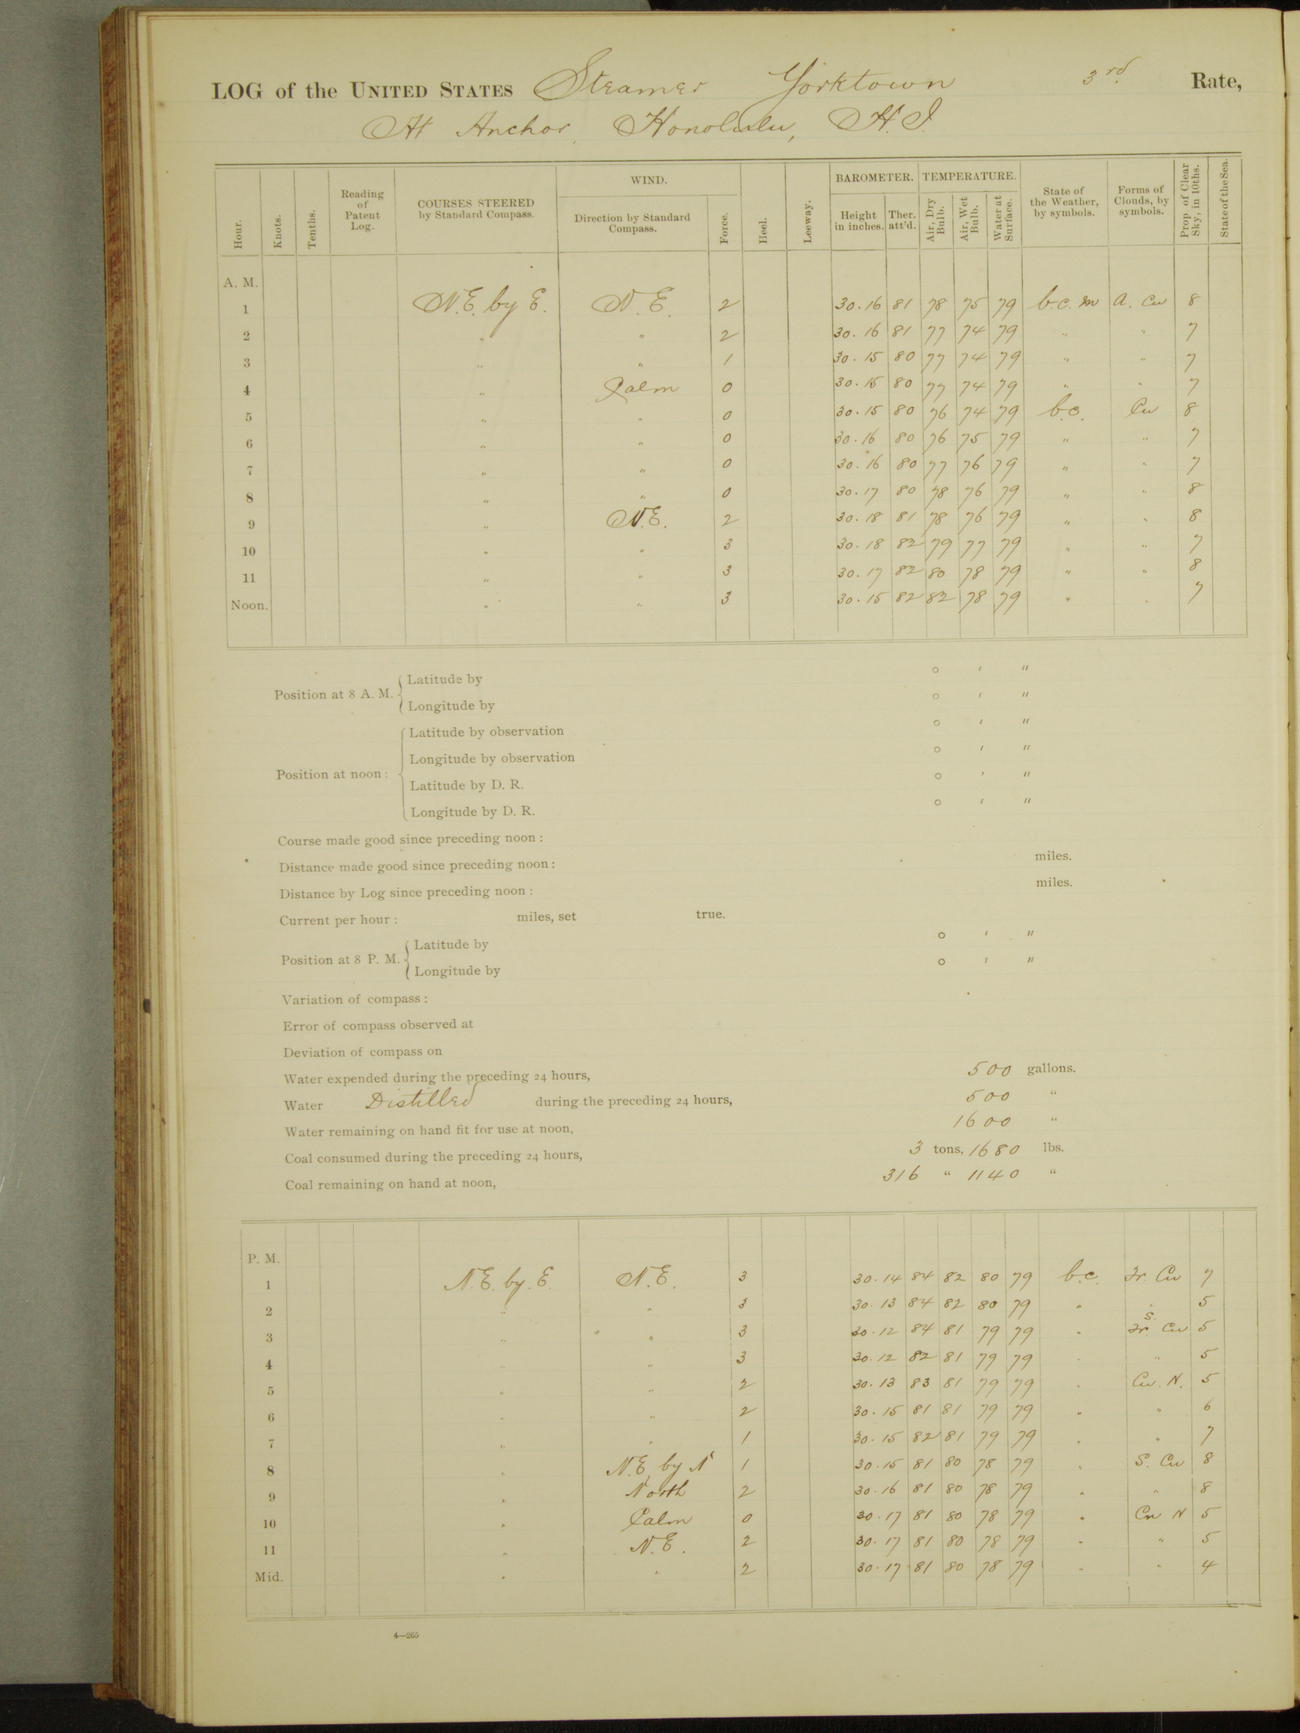 LOG of the UNITED STATES Steamer Yorktown 3rd Rate,
At Anchor, Honolulu, H.I.
Hour. Knots. Tenths. Reading of Patent Log. COURSES STEERED by Standard Compass. WIND. Direction by Standard Compass. Force. Heel. Leeway. BAROMETER. Height in inches. Ther. att'd. TEMPERATURE. Air, Dry Bulb. Air, Wet Bulb. Water at Surface. State of the Weather, by symbols. Forms of Clouds, by symbols. Prop. of Clear Sky, in 10ths. State of the Sea.
A. M.
1 N.E. by E. N.E. 2 30.16 81 78 75 79 b.c.m A. Cu 8
2 " " 2 30.16 81 77 74 79 " " 7
3 " " 1 30.15 80 77 74 79 " " 7
4 " Calm 0 30.15 80 77 74 79 " " 7
5 " " 0 30.15 80 76 74 79 b.c. Cu 8
6 " " 0 30.16 80 76 75 79 " " 7
7 " " 0 30.16 80 77 76 79 " " 7
8 " " 0 30.17 80 78 76 79 " " 8
9 " N.E. 2 30.18 81 78 76 79 " " 8
10 " " 3 30.18 82 79 77 79 " " 7
11 " " 3 30.17 82 80 78 79 " " 8
Noon. " " 3 30.15 82 82 78 79 " " 7
Position at 8 A. M. { Latitude by ° ′ ″
Longitude by ° ′ ″
Position at noon: { Latitude by observation ° ′ ″
Longitude by observation ° ′ ″
Latitude by D. R. ° ′ ″
Longitude by D. R. ° ′ ″
Course made good since preceding noon:
Distance made good since preceding noon: miles.
Distance by Log since preceding noon: miles.
Current per hour: miles, set true.
Position at 8 P. M. { Latitude by ° ′ ″
Longitude by ° ′ ″
Variation of compass:
Error of compass observed at
Deviation of compass on
Water expended during the preceding 24 hours, 500 gallons.
Water Distilled during the preceding 24 hours, 500 "
Water remaining on hand fit for use at noon, 1600 "
Coal consumed during the preceding 24 hours, 3 tons, 1680 lbs.
Coal remaining on hand at noon, 316 " 1140 "
P. M.
1 N.E. by E. N.E. 3 30.14 84 82 80 79 b.c. Fr. Cu 7
2 " " 3 30.13 84 82 80 79 " " 5
3 " " 3 30.12 84 81 79 79 " S. Cu 5
4 " " 3 30.12 82 81 79 79 " " 5
5 " " 2 30.13 83 81 79 79 " Cu. N. 5
6 " " 2 30.15 81 81 79 79 " " 6
7 " " 1 30.15 82 81 79 79 " " 7
8 " N.E. by N 1 30.15 81 80 78 79 " S. Cu 8
9 " North 2 30.16 81 80 78 79 " " 8
10 " Calm 0 30.17 81 80 78 79 " Cu N 5
11 " N.E. 2 30.17 81 80 78 79 " " 5
Mid. " " 2 30.17 81 80 78 79 " " 4
4—265